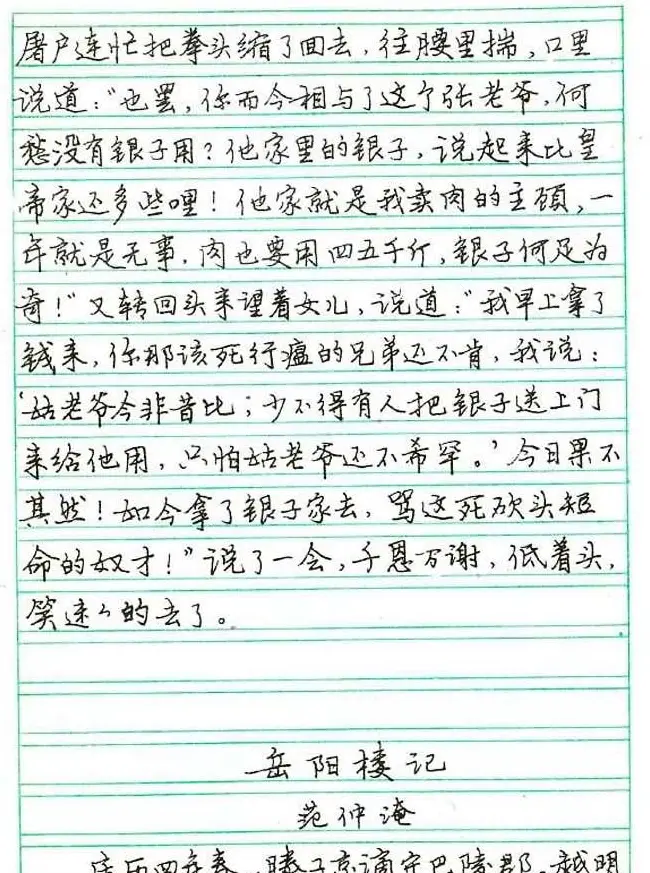 屠户连忙把拳头缩了回去，往腰里揣，口里
说道：“也罢，你而今相与了这个张老爷，何
愁没有银子用？他家里的银子，说起来比皇
帝家还多些哩！他家就是我卖肉的主顾，一
年就是无事，肉也要用四五千斤，银子何足为
奇！”又转回头来望着女儿，说道：“我早上拿了
钱来，你那该死行瘟的兄弟还不肯，我说：
‘姑老爷今非昔比；少不得有人把银子送上门
来给他用，只怕姑老爷还不希罕。’今日果不
其然！如今拿了银子家去，骂这死砍头短
命的奴才！”说了一会，千恩万谢，低着头，
笑迷々的去了。
岳阳楼记
范仲淹
庆历四年春，滕子京谪守巴陵郡。越明